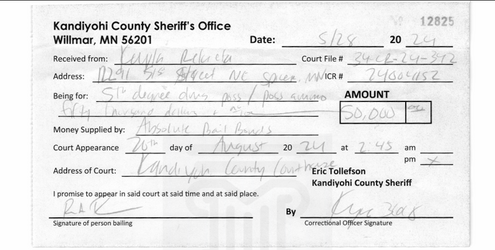 Kandiyohi County Sheriff's Office No 12825
Willmar, MN 56201 Date: 5/28 20 24
Received from: Kayla Court File # 34-CR-24-372
Address: Street NE MN ICR # 24004152
Being for: 5th degree drug poss / poss ammo AMOUNT
fifty thousand dollars + 50,000
Money Supplied by: Absolute Bail Bonds
Court Appearance 20th day of August 20 24 at 2:45 am
pm x
Address of Court: Kandiyohi County Courthouse Eric Tollefson
Kandiyohi County Sheriff
I promise to appear in said court at said time and at said place.
By
Signature of person bailing Correctional Officer Signature